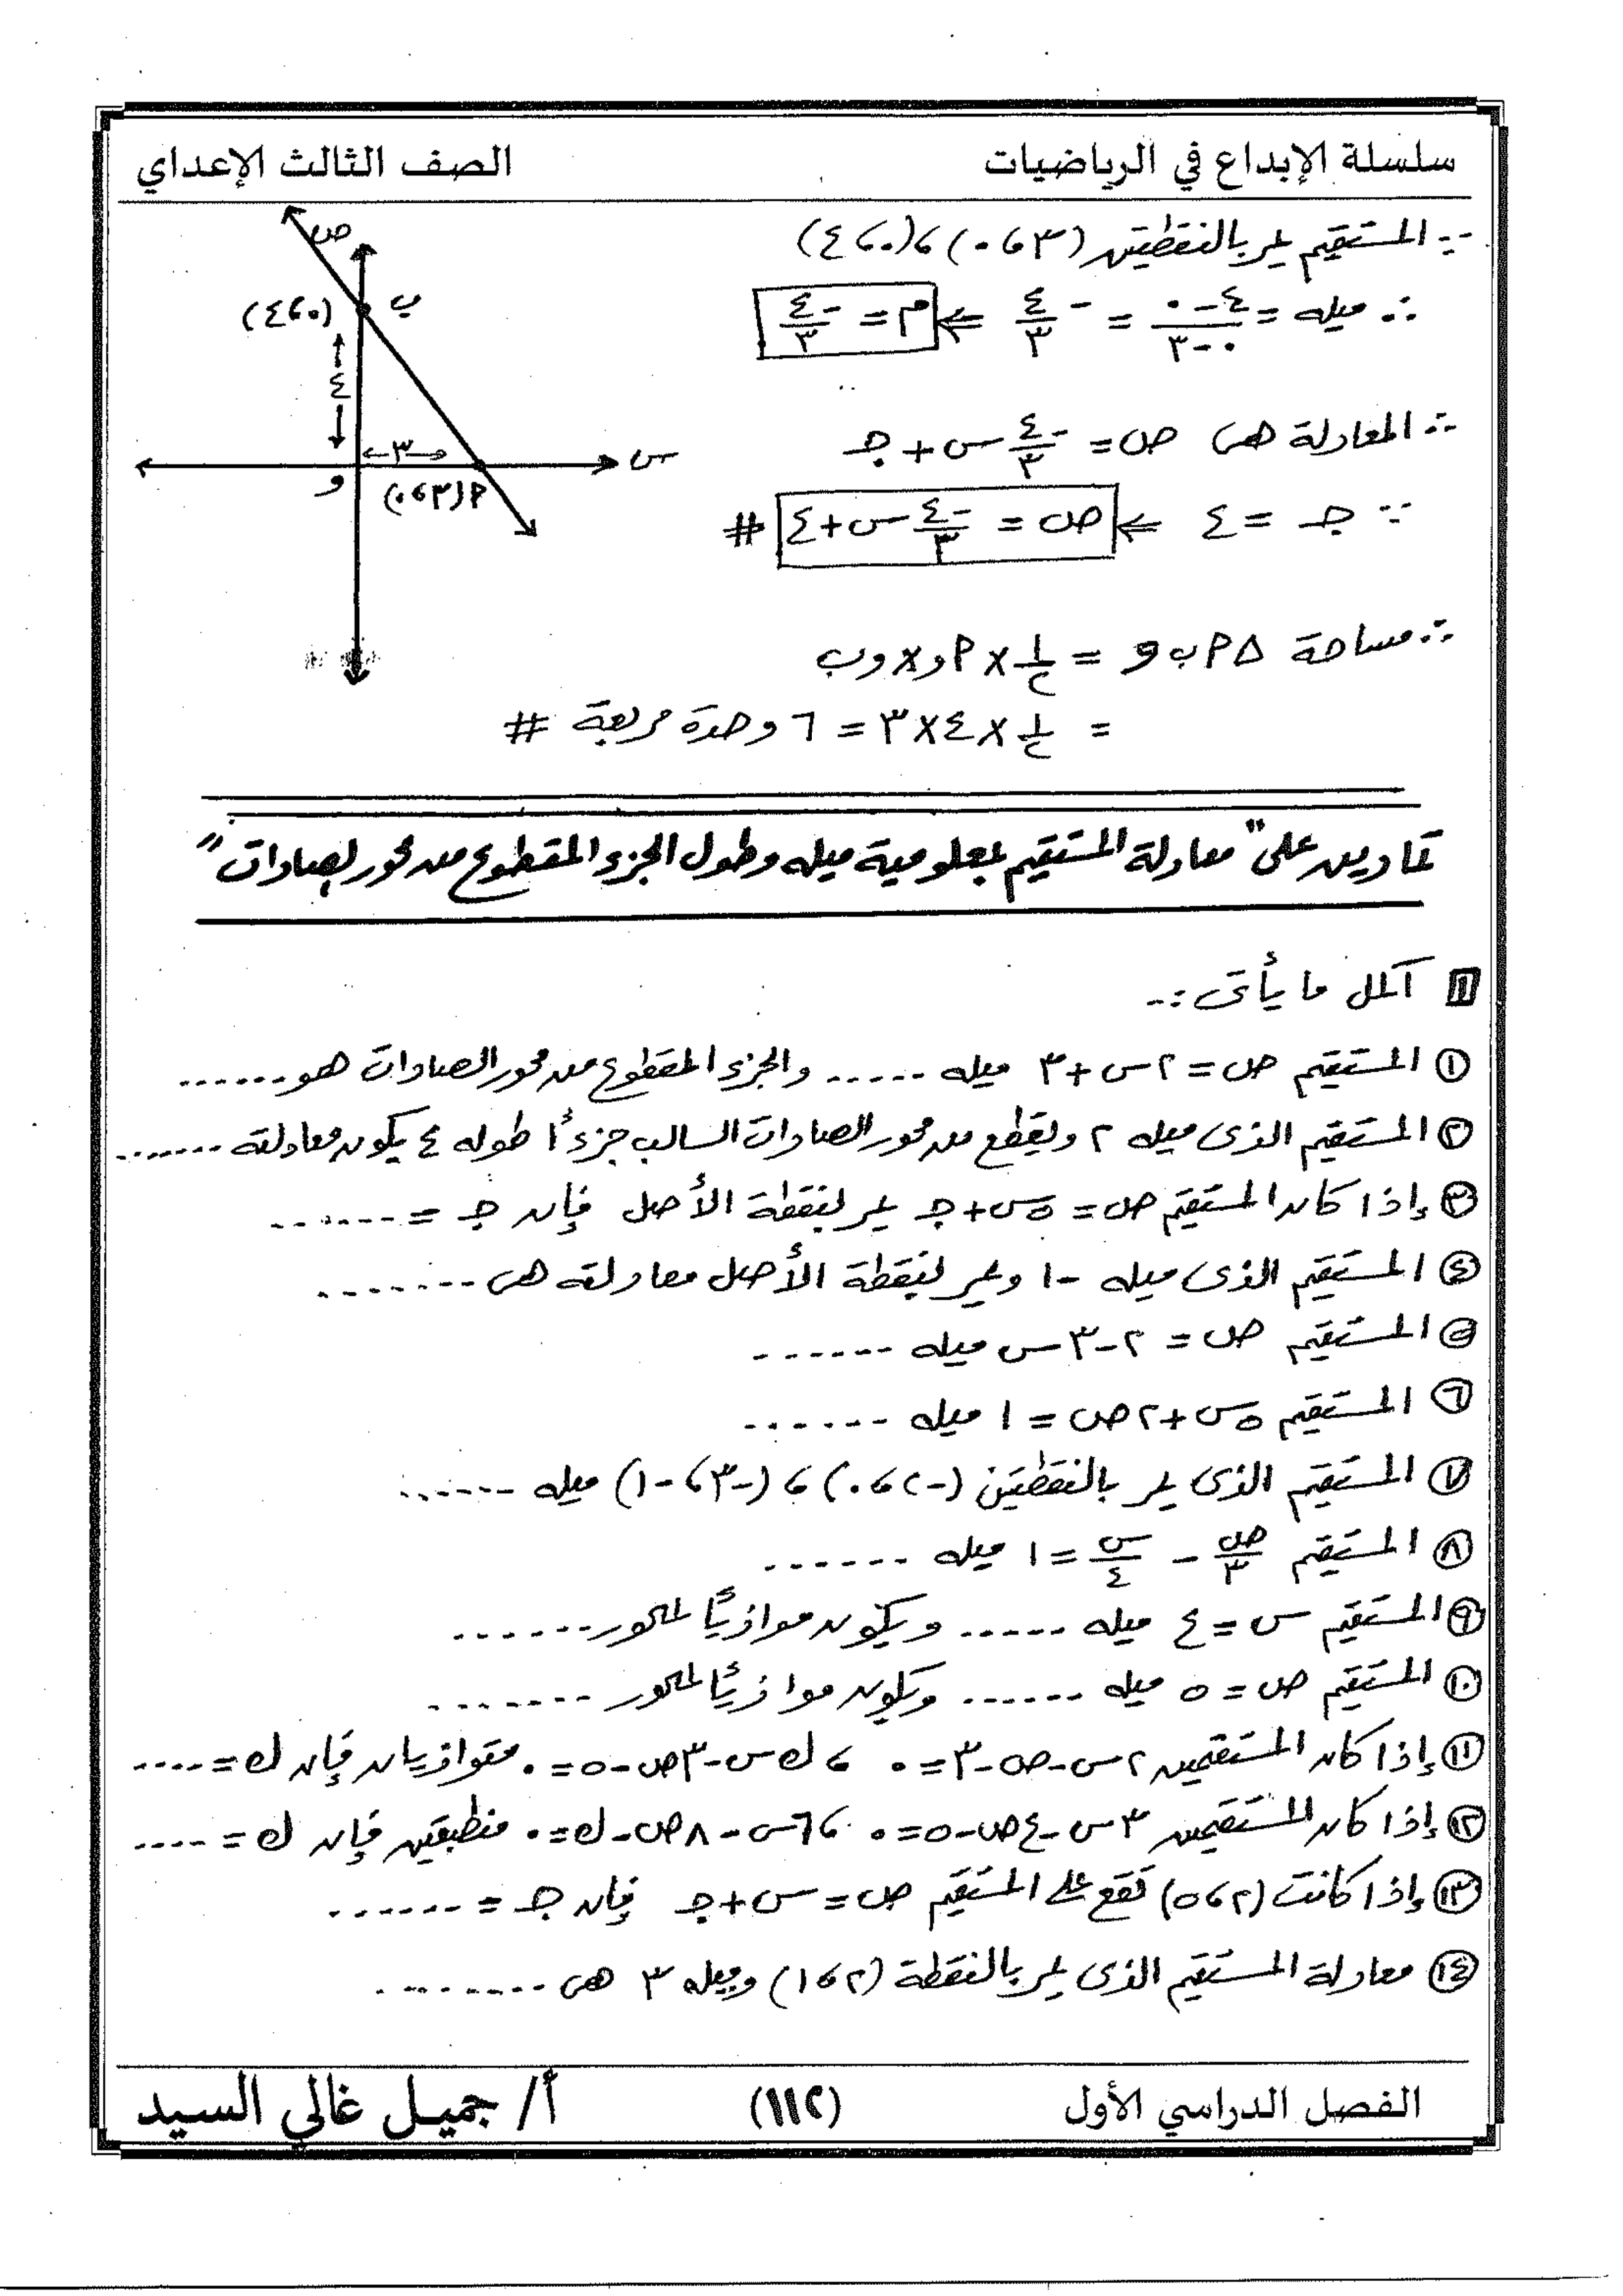 سلسلة الإبداع في الرياضيات
الصف الثالث الإعداي
∵ المستقيم يمر بالنقطتين (٣ ، ٠) ، (٠ ، ٤)
∴ ميله = (٤ - ٠)/(٠ - ٣) = -٤/٣ ⇐ م = -٤/٣
∴ المعادلة هى ص = -٤/٣ س + جـ
∵ جـ = ٤ ⇐ ص = -٤/٣ س + ٤ #
∴ مساحة △ أ ب و = ١/٢ × أ و × و ب
= ١/٢ × ٤ × ٣ = ٦ وحدة مربعة #
ص
ب
(٠ ، ٤)
٤
٣
س
و
أ (٣ ، ٠)
تمارين على " معادلة المستقيم بمعلومية ميله وطول الجزء المقطوع من محور الصادات "
١ أكمل ما يأتى :-
١ المستقيم ص = ٢س + ٣ ميله ..... والجزء المقطوع من محور الصادات هو ......
٢ المستقيم الذى ميله ٢ ويقطع من محور الصادات السالب جزءاً طوله ٤ يكون معادلته .......
٣ إذا كان المستقيم ص = ٥س + جـ يمر بنقطة الأصل فإن جـ = .......
٤ المستقيم الذى ميله -١ ويمر بنقطة الأصل معادلته هى .......
٥ المستقيم ص = ٢ - ٣س ميله ......
٦ المستقيم ٥س + ٢ص = ١ ميله ......
٧ المستقيم الذى يمر بالنقطتين (-٢ ، ٠) ، (-٣ ، -١) ميله ......
٨ المستقيم ص/٣ - س/٤ = ١ ميله ......
٩ المستقيم س = ٤ ميله ..... ويكون موازيًا لمحور ......
١٠ المستقيم ص = ٥ ميله ...... ويكون موازيًا لمحور .......
١١ إذا كان المستقيمين ٢س - ص - ٣ = ٠ ، ك س - ٣ص - ٥ = ٠ متوازيان فإن ك = ....
١٢ إذا كان المستقيمين ٣س - ٤ص - ٥ = ٠ ، ٦س - ٨ص - ك = ٠ منطبقين فإن ك = ....
١٣ إذا كانت (٢ ، ٥) تقع على المستقيم ص = س + جـ فإن جـ = ......
١٤ معادلة المستقيم الذى يمر بالنقطة (٢ ، ١) وميله ٣ هى ........
الفصل الدراسي الأول
(١١٢)
أ/ جميل غالي السيد